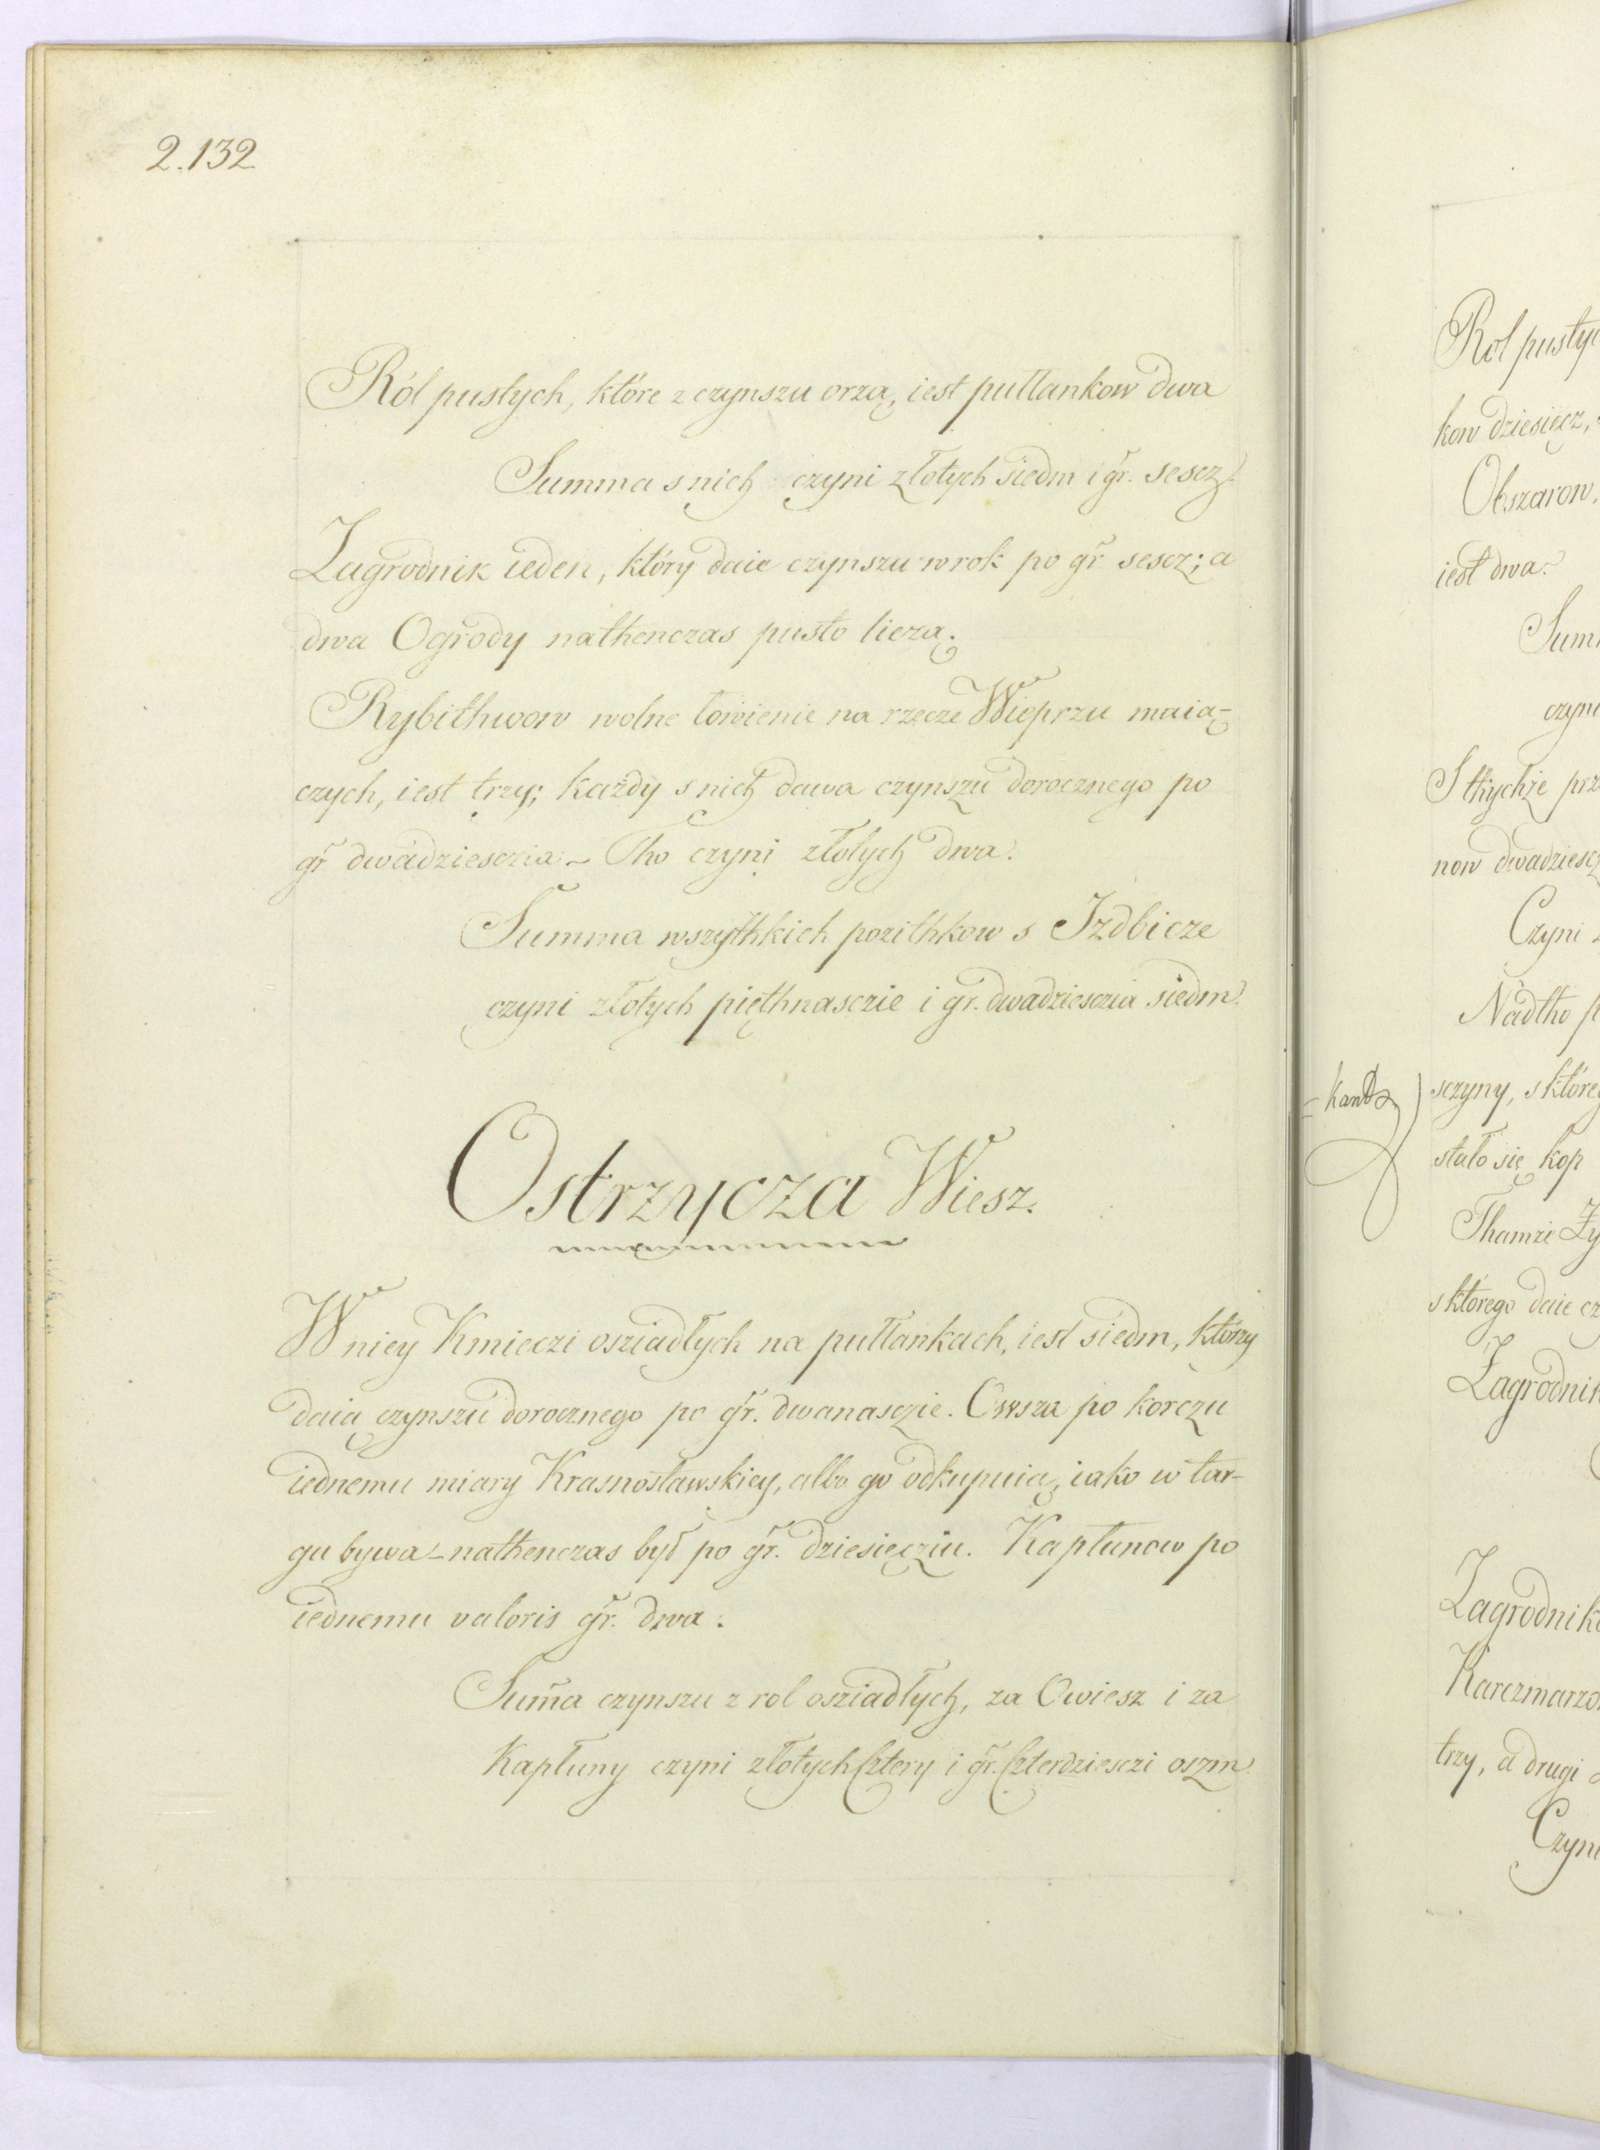 2.132
Ról pustych, które z czynszu orzą, iest pułlankow dwa
Summa s nich czyni złotych siedm i gr. sescz.
Zagrodnik ieden, który daie czynszu w rok po gr sescz; a
dwa Ogrody nathenczas pusto liczą.
Rybithwow wolne łowienie na rzecze Wieprzu maią-
czych, iest trzy; każdy s nich dawa czynszu dorocznego po
gr dwadziesczia – Tho czyni złotych dwa.
Summa wszythkich pozithkow s Izdbicze
czyni złotych pięthnasczie i gr. dwadziesczia siedm.
Ostrzycza Wiesz.
W niey Kmieczi osziadłych na pułłankach, iest siedm, którzy
daią czynszu dorocznego po gr. dwanasczie. Owsza po korczu
iednemu miary Krasnosławskiey, albo go odkupuią, iako w tar-
gu bywa – nathenczas był po gr. dziesięcziu. Kapłunow po
iednemu valoris gr. dwa.
Suma czynszu z rol osziadłych, za Owiesz i za
Kapłuny czyni złotych Cztery i gr. Czterdziesczi oszm.
Rol pusty
kow dziesięcz,
Obszarow,
iest dwa.
Sum
czyni
S thychże prz
now dwadziesc
Czyni
Nadtho p
sczyny, s które
stało się kop
Thamże Ży
s którego daie cz
Zagrodnik
Zagrodnik
Karczmarzo
trzy, a drugi
Czyni